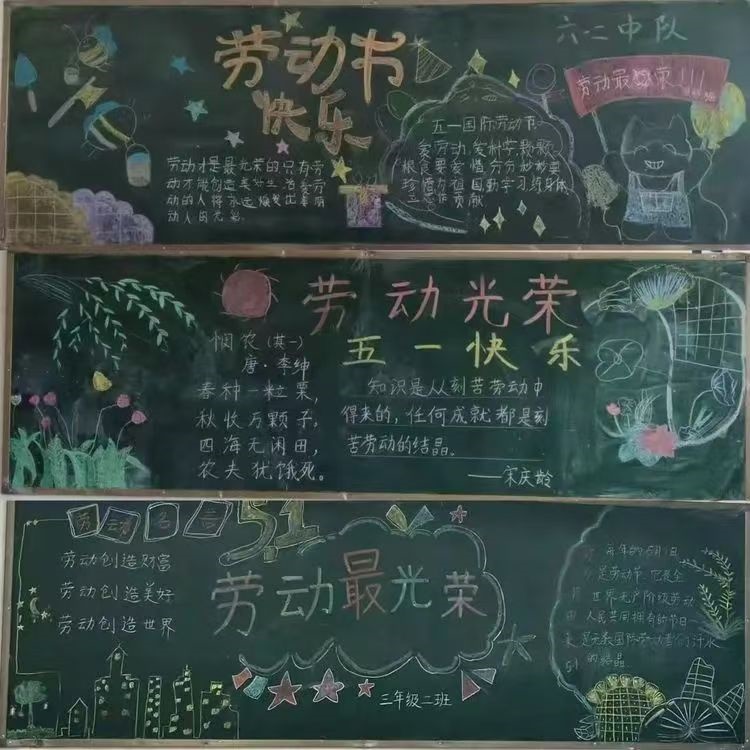 劳动节
快乐
六二中队
劳动最光荣!!!
劳动才是最光荣的只有劳
动才能创造美好生活爱劳
动的人将永远焕发出奉明
动人的光彩
五一国际劳动节
爱劳动爱科学歌歌
粮食要爱惜分分秒秒要
珍惜为祖国勤学习练身体
立志作贡献
劳动光荣
五一快乐
悯农(其一)
唐·李绅
春种一粒粟,
秋收万颗子。
四海无闲田,
农夫犹饿死。
知识是从刻苦劳动中
得来的,任何成就都是刻
苦劳动的结晶。
——宋庆龄
劳动名言
劳动创造财富
劳动创造美好
劳动创造世界
5.1
劳动最光荣
三年级二班
每年的5月1日
是劳动节
世界无产阶级劳动
人民共同拥有的节日
是无数国际劳动者们汗水
的结晶
由
来
51